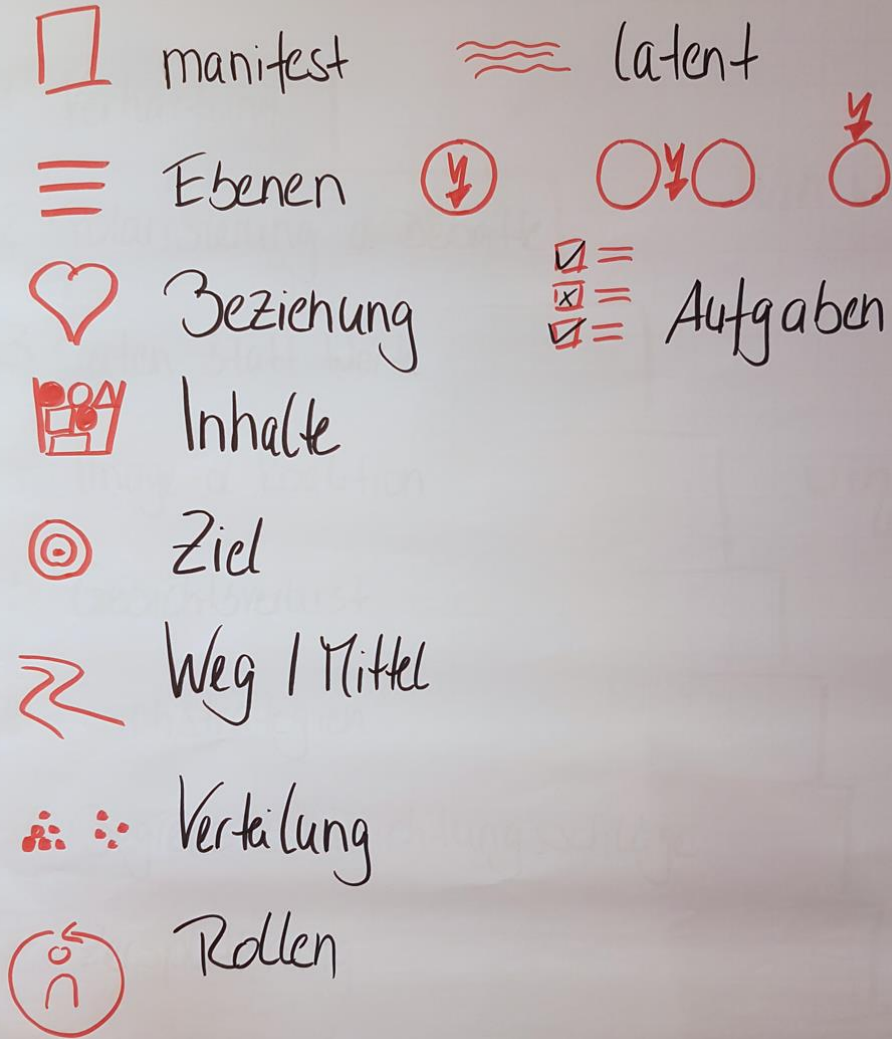 manifest latent
Ebenen
Beziehung
Aufgaben
Inhalte
Ziel
Weg / Mittel
Verteilung
Rollen